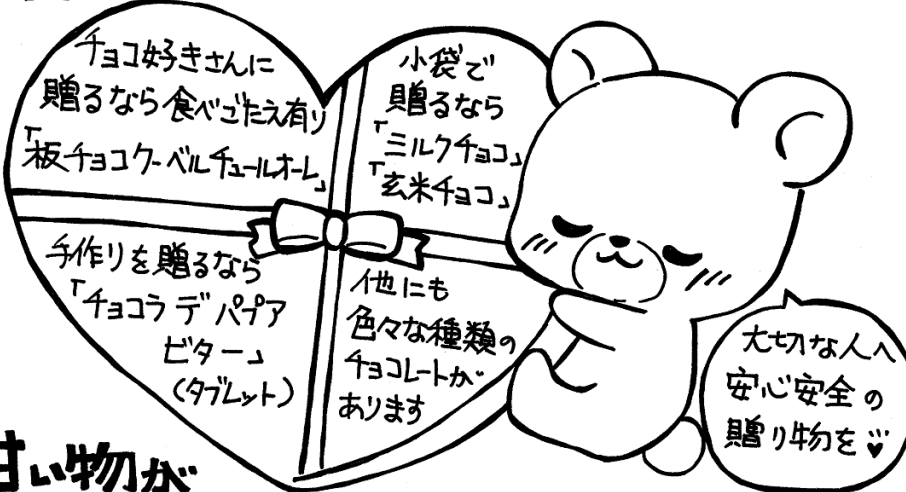 チョコ好きさんに
贈るなら食べごたえ有り
「板チョコクーベルチュールオーレ」
小袋で
贈るなら
「ミルクチョコ」
「玄米チョコ」
手作りを贈るなら
「チョコラ デ パプア
ビター」
(タブレット)
他にも
色々な種類の
チョコレートが
あります
大切な人へ
安心安全の
贈り物を
甘い物が